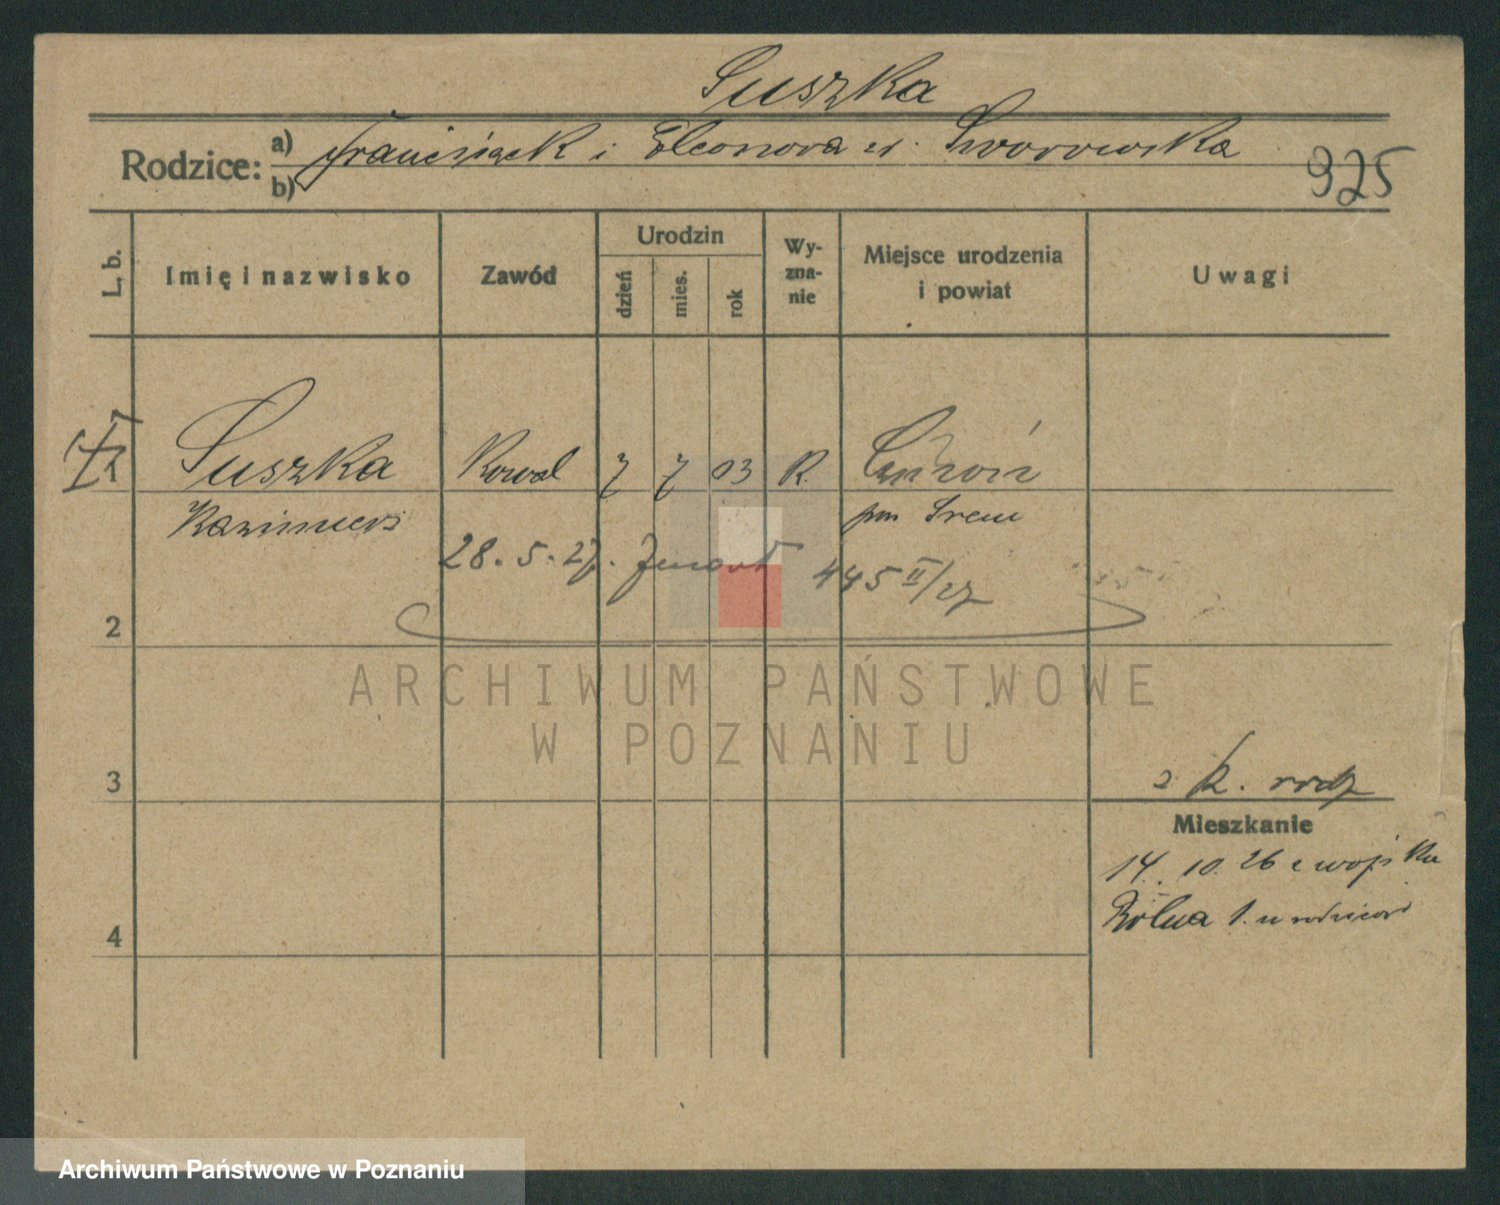 Suszka
Rodzice: a) Franciszek i Eleonora u. Sworowska
b)
925
L. b.
Imię i nazwisko
Zawód
Urodzin
dzień
mies.
rok
Wy-
zna-
nie
Miejsce urodzenia
i powiat
Uwagi
Suszka Kowal 7 7 03 R.
Kazimierz pow Śrem
28. 5. 27. zmarł 445 II/27
2
ARCHIWUM PAŃSTWOWE
W POZNANIU
3
z k. rodz
Mieszkanie
14. 10. 26 z wojska
Rolna 1. u rodziców
4
Archiwum Państwowe w Poznaniu